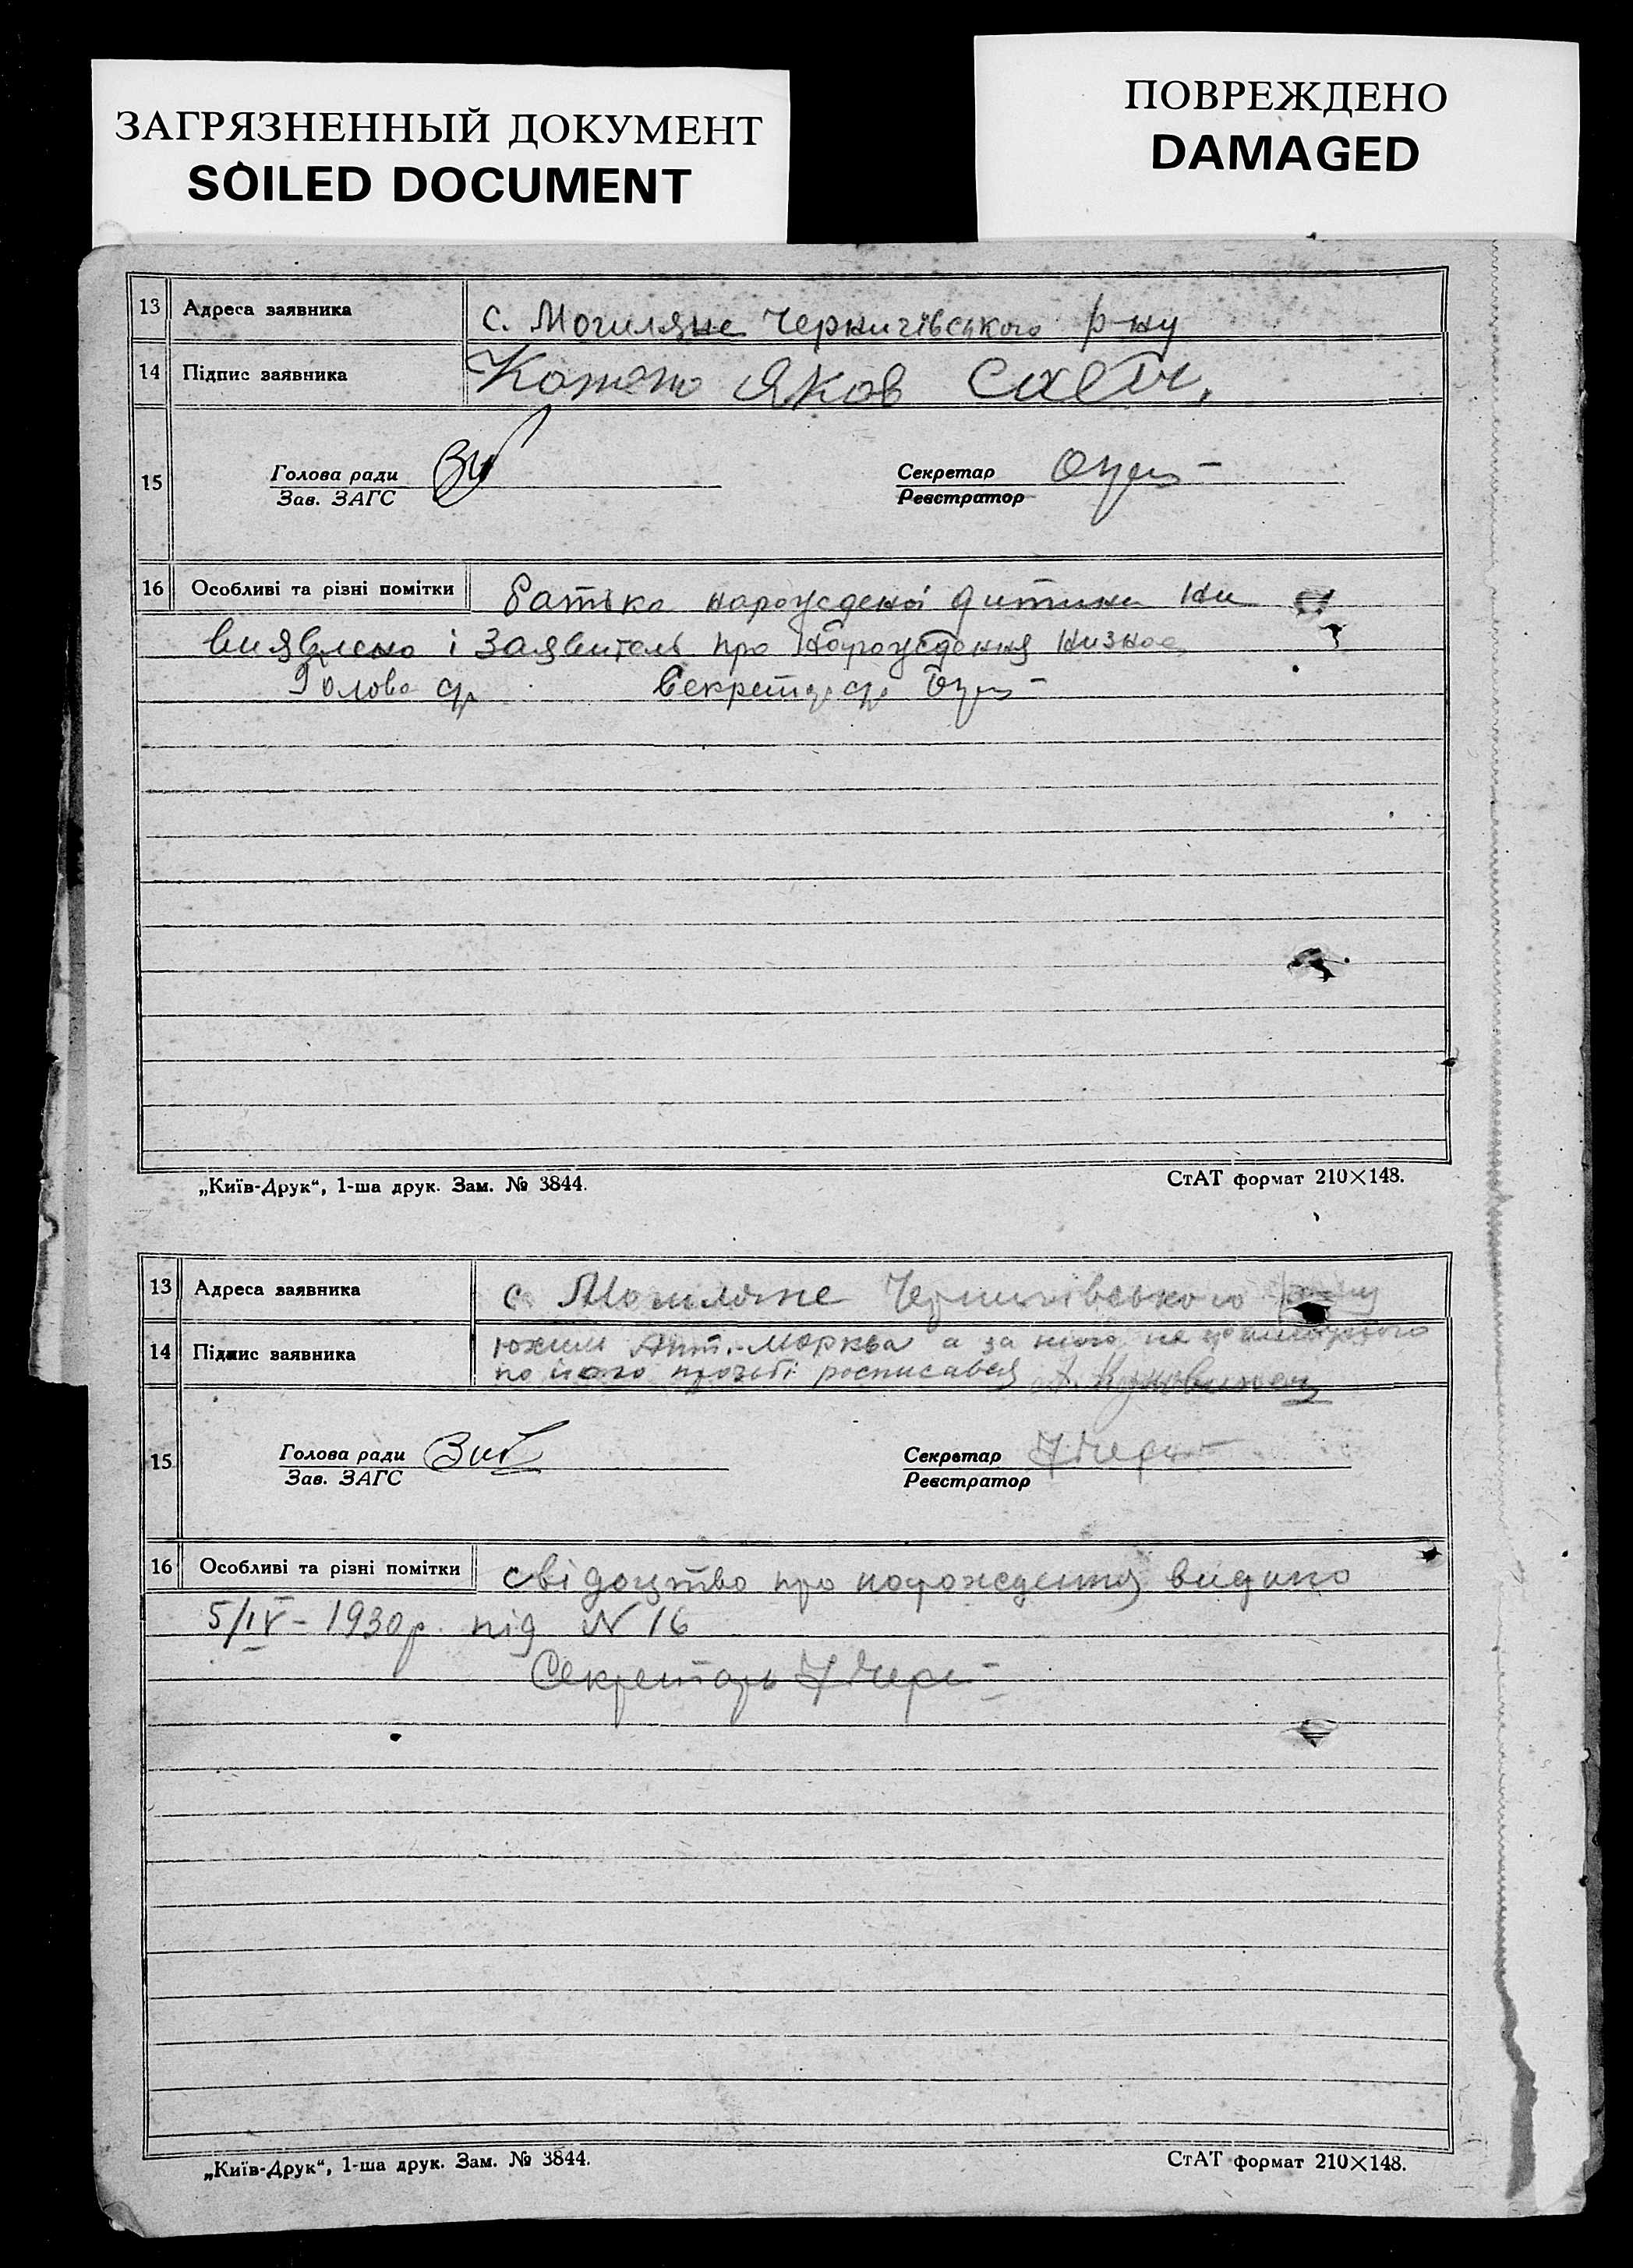 ЗАГРЯЗНЕННЫЙ ДОКУМЕНТ
SOILED DOCUMENT
ПОВРЕЖДЕНО
DAMAGED
13 Адреса заявника с. Могиляне Чернигівського р-ну
14 Підпис заявника Яков
15 Голова ради Секретар
Зав. ЗАГС Реєстратор
16 Особливі та різні помітки батька народженої дитини ни
виявлено і заявитель про народження низнає
Голова ср Секретар ср
„Київ-Друк“, 1-ша друк. Зам. № 3844. СтАТ формат 210×148.
13 Адреса заявника с Могиляне Чернигівського
14 Підпис заявника Юхим Ант. Морква а за нього не
по його прозьбі росписався А.
15 Голова ради Секретар
Зав. ЗАГС Реєстратор
16 Особливі та різні помітки свідоцтво про народження видано
5/IV - 1930 р. під N 16
Секретарь
„Київ-Друк“, 1-ша друк. Зам. № 3844. СтАТ формат 210×148.